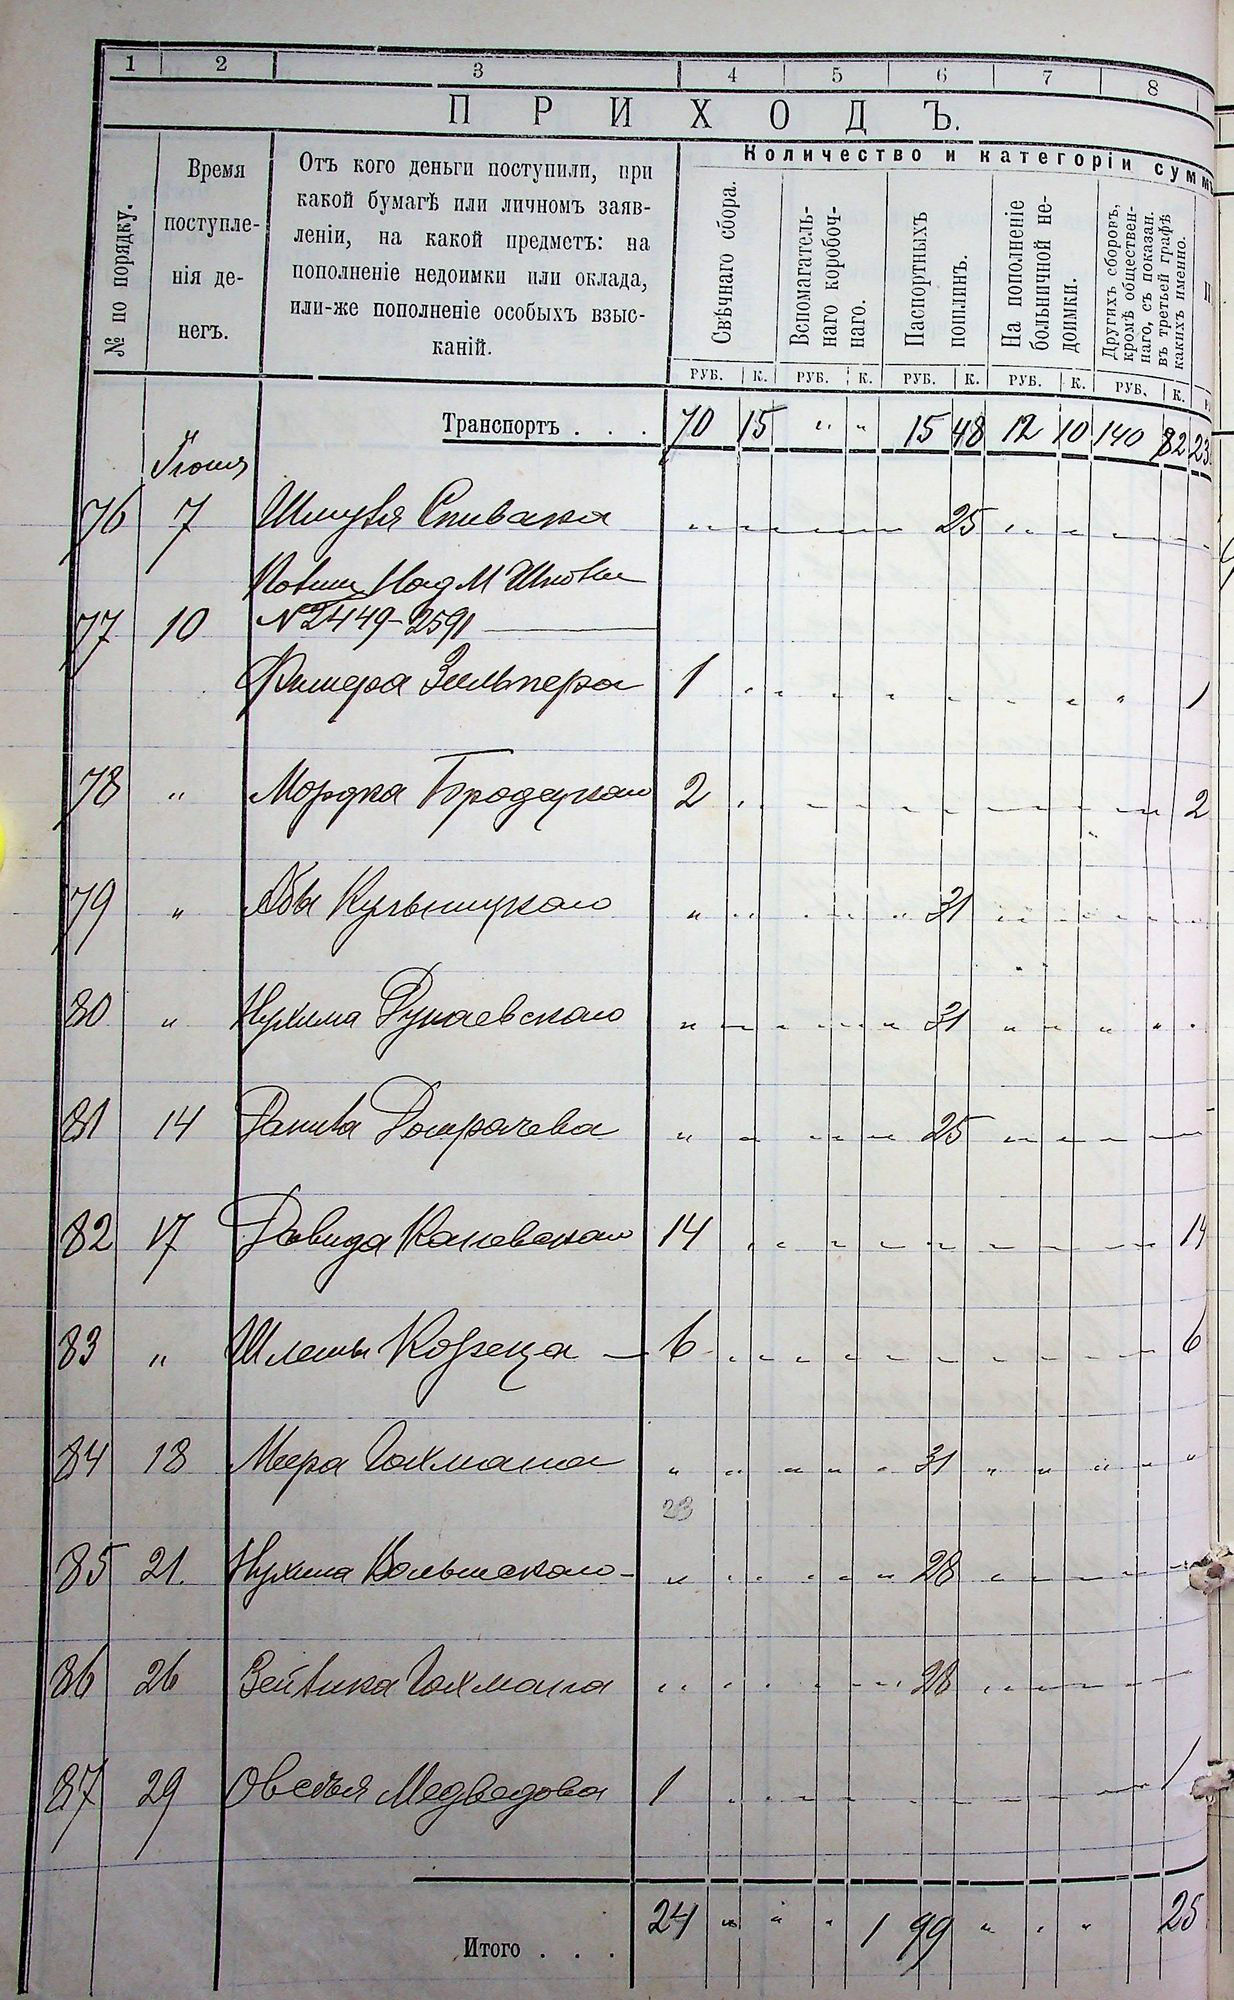 1 2 3 4 5 6 7 8
ПРИХОДЪ.
Количество и категоріи суммъ
№ по порядку.
Время
поступле-
нія де-
негъ.
Отъ кого деньги поступили, при
какой бумагѣ или личномъ заяв-
леніи, на какой предметъ: на
пополненіе недоимки или оклада,
или-же пополненіе особыхъ взыс-
каній.
Свѣчнаго сбора.
Вспомагатель-
наго коробоч-
наго.
Паспортныхъ
пошлинъ.
На пополненіе
больничной не-
доимки.
Другихъ сборовъ,
кромѣ обществен-
наго, съ показан.
въ третьей графѣ
какихъ именно.
РУБ. К. РУБ. К. РУБ. К. РУБ. К. РУБ. К.
Транспортъ . . . 70 15 " " 15 48 12 10 140 82 23
Іюня
76 7 Шмуля Спивака 25
77 10 №2449-2591
Фишера Зильпера 1 1
78 " Мордка Бродецкаго 2 2
79 " Абы 31
80 " Нухима Дунаевскаго 31
81 14 25
82 17 Давида Каневскаго 14 14
83 " Шлемы Корецa 6 6
84 18 Меера Гохмана 31
23
85 21. Нухима 28
86 26 Зейвика Гохмана 28
87 29 Овсея Медведова 1 1
Итого . . . 24 " " " 1 99 " " " 25